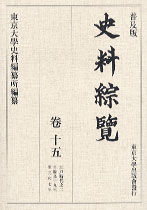 普及版
史料綜覽
卷十五
東京大學史料編纂所編纂
東京大學出版會發行